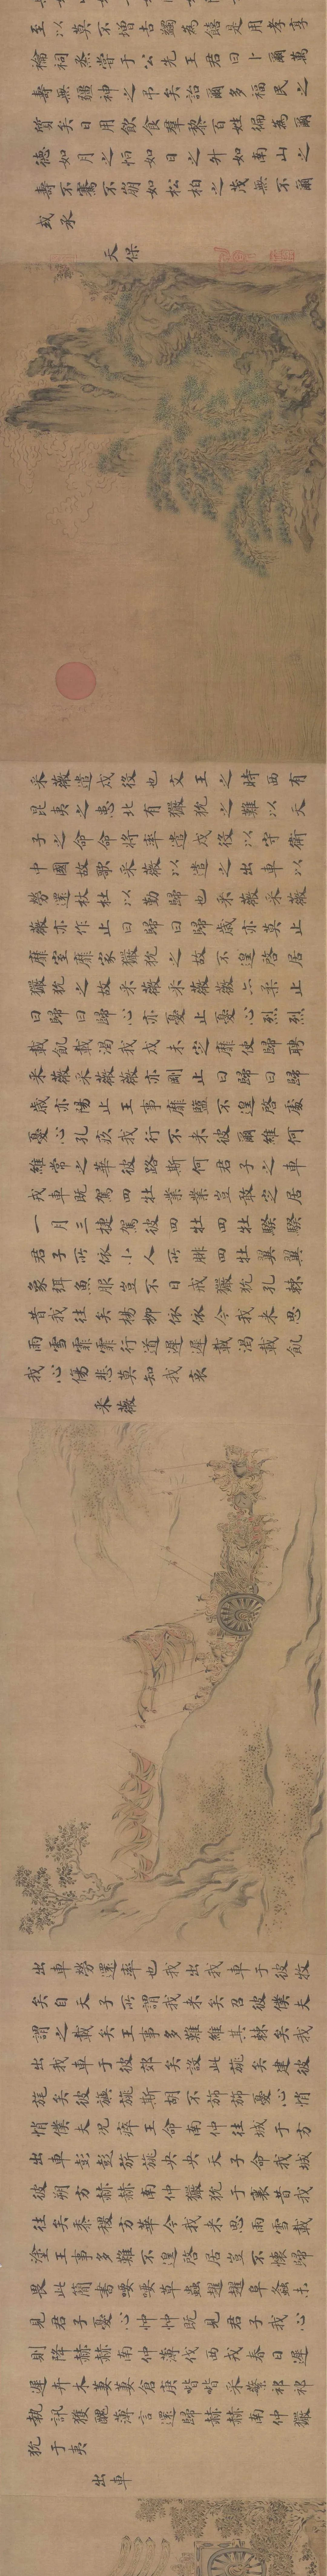 至以莫不增吉蠲為饎是用孝享
禴祠烝嘗于公先王君曰卜爾萬
壽無疆神之弔矣詒爾多福民之
質矣日用飲食群黎百姓徧為爾
德如月之恒如日之升如南山之
壽不騫不崩如松柏之茂無不爾
或承
天保
采薇遣戍役也文王之時西有
昆夷之患北有玁狁之難以天
子之命命將率遣戍役以守衛
中國故歌采薇以遣之出車以
勞還杕杜以勤歸也采薇采薇
薇亦作止曰歸曰歸歲亦莫止
靡室靡家玁狁之故不遑啓居
玁狁之故采薇采薇薇亦柔止
曰歸曰歸心亦憂止憂心烈烈
載飢載渴我戍未定靡使歸聘
采薇采薇薇亦剛止曰歸曰歸
歲亦陽止王事靡盬不遑啓處
憂心孔疚我行不來彼爾維何
維常之華彼路斯何君子之車
戎車既駕四牡業業豈敢定居
一月三捷駕彼四牡四牡騤騤
君子所依小人所腓四牡翼翼
象弭魚服豈不日戒玁狁孔棘
昔我往矣楊柳依依今我來思
雨雪霏霏行道遲遲載渴載飢
我心傷悲莫知我哀
采薇
出車勞還率也我出我車于彼牧
矣自天子所謂我來矣召彼僕夫
謂之載矣王事多難維其棘矣我
出我車于彼郊矣設此旐矣建彼
旄矣彼旟旐斯胡不旆旆憂心悄
悄僕夫況瘁王命南仲往城于方
出車彭彭旂旐央央天子命我城
彼朔方赫赫南仲玁狁于襄昔我
往矣黍稷方華今我來思雨雪載
塗王事多難不遑啓居豈不懷歸
畏此簡書喓喓草蟲趯趯阜螽未
見君子憂心忡忡既見君子我心
則降赫赫南仲薄伐西戎春日遲
遲卉木萋萋倉庚喈喈采蘩祁祁
執訊獲醜薄言還歸赫赫南仲玁
狁于夷
出車